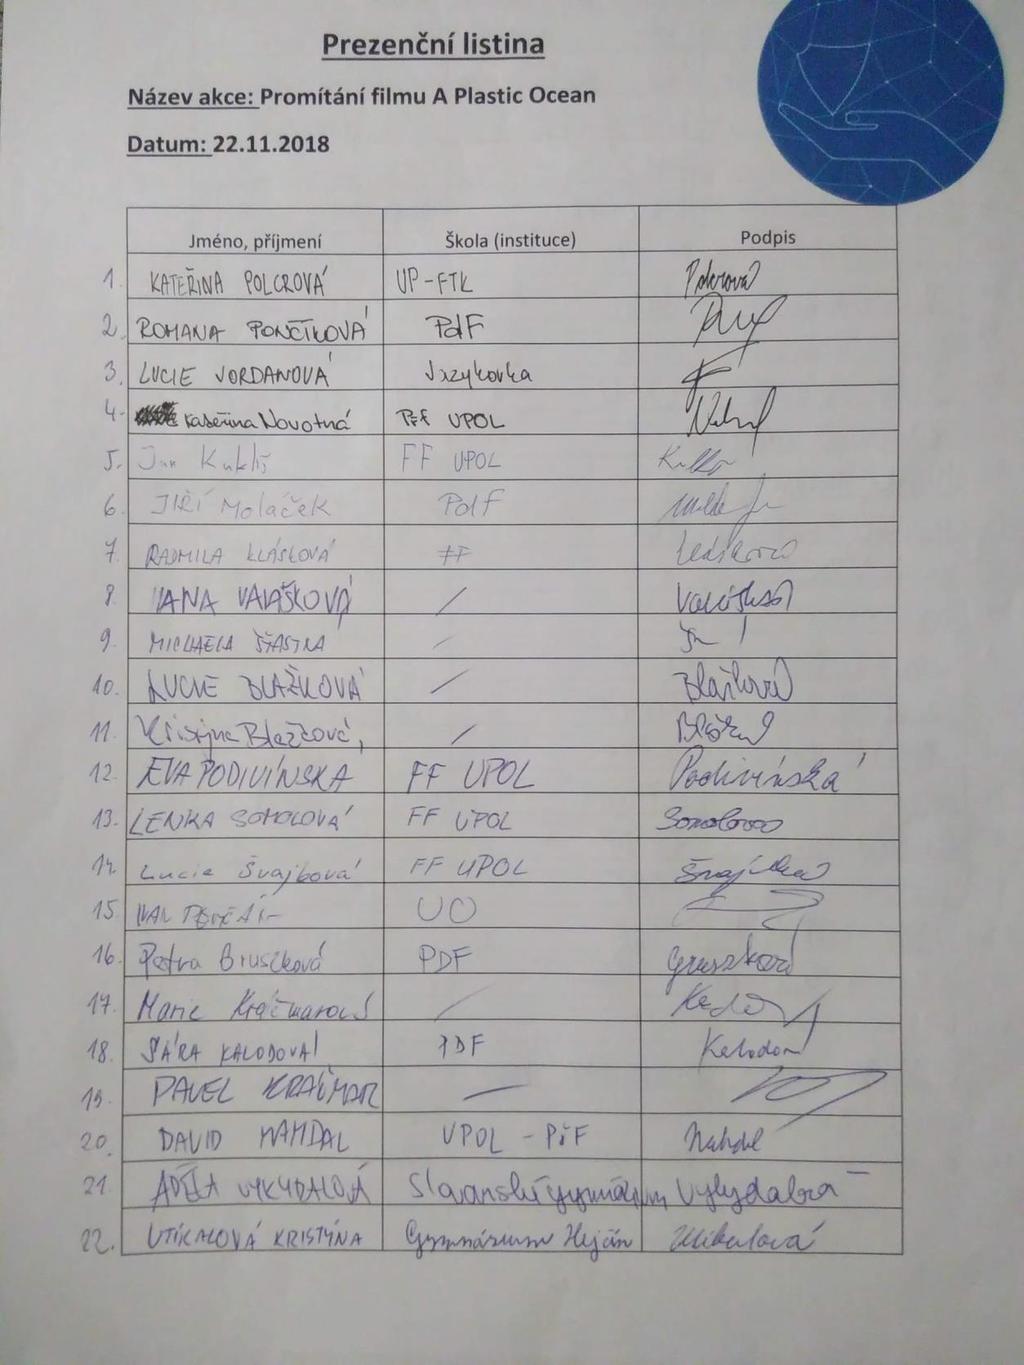 Prezenční listina
Název akce: Promítání filmu A Plastic Ocean
Datum: 22.11.2018
Jméno, příjmení Škola (instituce) Podpis
1. KATEŘINA POLCROVÁ UP-FTK Polcrová
2. ROMANA PONČÍKOVÁ PdF
3. LUCIE JORDANOVÁ Jazykovka
4. Kateřina Novotná PřF UPOL
5. Jan Kukliš FF UPOL
6. JIŘÍ Moláček PdF
7. RADMILA FF
8. JANA VALÁŠKOVÁ /
9. MICHAELA ŠŤASTNÁ /
10. LUCIE BLAŽKOVÁ / Blažková
11. Kristýna Blažková, /
12. EVA PODIVÍNSKÁ FF UPOL Podivínská
13. LENKA SOKOLOVÁ FF UPOL Sokolova
14. Lucie Švajbová FF UPOL
15. IVAN UO
16. Petra Gruszková PDF Gruszková
17. Marie Kráčmarová /
18. SÁRA KALODOVÁ PDF
19. PAVEL KRÁČMAR /
20. DAVID UPOL - PřF
21. ADÉLA VYKYDALOVÁ Slovanské gymnázium Vykydalová
22. KRISTÝNA Gymnázium Hejčín